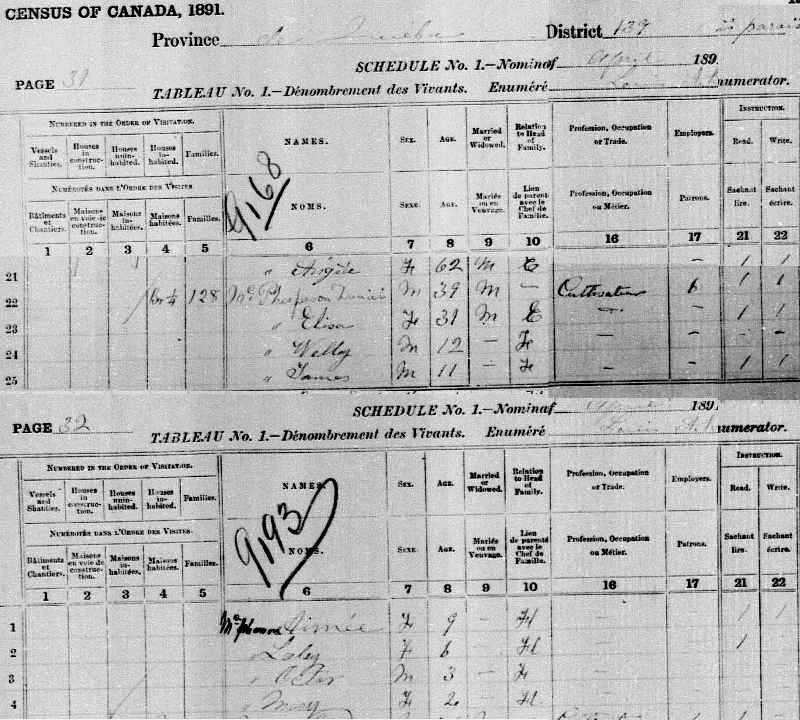 CENSUS OF CANADA, 1891.
Province de Québec District 139
SCHEDULE No. 1.—Nominal 189
PAGE 31 TABLEAU No. 1.—Dénombrement des Vivants. Enuméré Louis A. numerator.
NUMBERED IN THE ORDER OF VISITATION. NAMES. SEX. AGE. Married or Widowed. Relation to Head of Family. Profession, Occupation or Trade. Employers. INSTRUCTION.
Vessels and Shanties. Houses in construction. Houses uninhabited. Houses inhabited. Families. Read. Write.
9168
NUMÉROTÉS DANS L'ORDRE DES VISITES. NOMS. SEXE. AGE. Mariés ou en Veuvage. Lien de parenté avec le Chef de Famille. Profession, Occupation ou Métier. Patrons. Sachant lire. Sachant écrire.
Bâtiments et Chantiers. Maisons en voie de construction. Maisons inhabitées. Maisons habitées. Familles.
1 2 3 4 5 6 7 8 9 10 16 17 21 22
21 " F 62 M E – 1 1
22 128 McPherson Daniel M 39 M – Cultivateur 1 1
23 " Elisa F 31 M E – – 1 1
24 " Welley M 12 – F – –
25 " James M 11 – F – – 1 1
SCHEDULE No. 1.—Nominal 189
PAGE 32 TABLEAU No. 1.—Dénombrement des Vivants. Enuméré Louis A. numerator.
NUMBERED IN THE ORDER OF VISITATION. NAMES. SEX. AGE. Married or Widowed. Relation to Head of Family. Profession, Occupation or Trade. Employers. INSTRUCTION.
Vessels and Shanties. Houses in construction. Houses uninhabited. Houses inhabited. Families. Read. Write.
9193
NUMÉROTÉS DANS L'ORDRE DES VISITES. NOMS. SEXE. AGE. Mariés ou en Veuvage. Lien de parenté avec le Chef de Famille. Profession, Occupation ou Métier. Patrons. Sachant lire. Sachant écrire.
Bâtiments et Chantiers. Maisons en voie de construction. Maisons inhabitées. Maisons habitées. Familles.
1 2 3 4 5 6 7 8 9 10 16 17 21 22
1 Aimée F 9 – Fl – – 1 1
2 " F 6 – Fl – – 1
3 " M 3 – F – –
4 " Mary F 2 – Fl – –